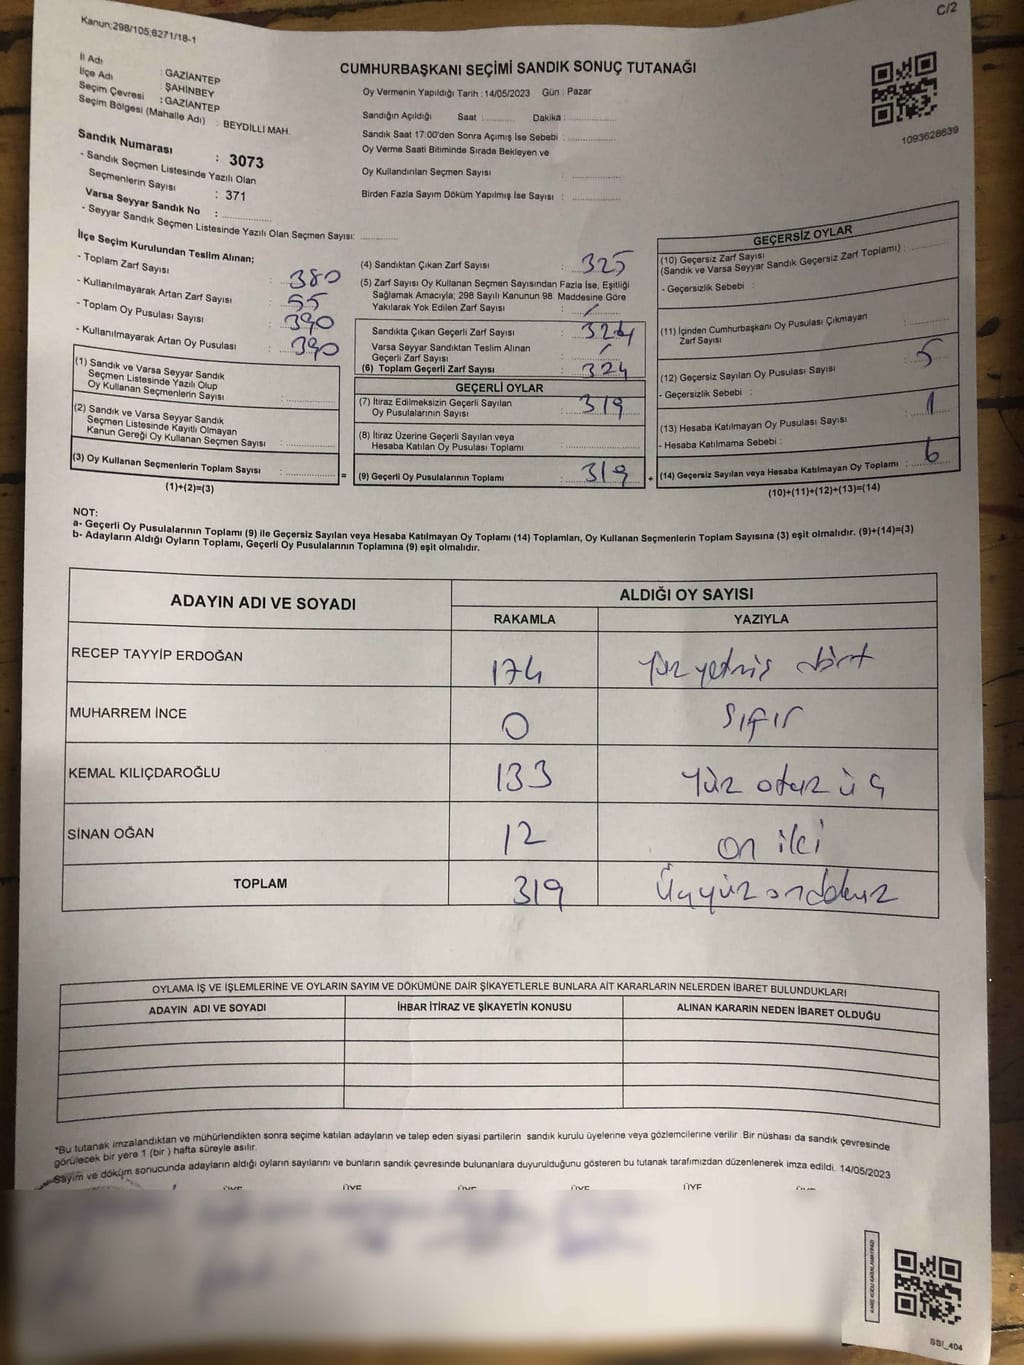 C/2
Kanun:298/105;6271/18-1
CUMHURBAŞKANI SEÇİMİ SANDIK SONUÇ TUTANAĞI
İl Adı : GAZİANTEP
İlçe Adı : ŞAHİNBEY
Seçim Çevresi : GAZİANTEP
Seçim Bölgesi (Mahalle Adı) : BEYDİLLİ MAH.
Sandık Numarası : 3073
- Sandık Seçmen Listesinde Yazılı Olan
Seçmenlerin Sayısı : 371
Varsa Seyyar Sandık No :
- Seyyar Sandık Seçmen Listesinde Yazılı Olan Seçmen Sayısı:
Oy Vermenin Yapıldığı Tarih : 14/05/2023 Gün : Pazar
Sandığın Açıldığı Saat : Dakika :
Sandık Saat 17:00'den Sonra Açımış İse Sebebi :
Oy Verme Saati Bitiminde Sırada Bekleyen ve
Oy Kullandırılan Seçmen Sayısı :
Birden Fazla Sayım Döküm Yapılmış İse Sayısı :
1093628639
İlçe Seçim Kurulundan Teslim Alınan;
- Toplam Zarf Sayısı : 380
- Kullanılmayarak Artan Zarf Sayısı : 55
- Toplam Oy Pusulası Sayısı : 390
- Kullanılmayarak Artan Oy Pusulası : 390
(1) Sandık ve Varsa Seyyar Sandık
Seçmen Listesinde Yazılı Olup
Oy Kullanan Seçmenlerin Sayısı :
(2) Sandık ve Varsa Seyyar Sandık
Seçmen Listesinde Kayıtlı Olmayan
Kanun Gereği Oy Kullanan Seçmen Sayısı :
(3) Oy Kullanan Seçmenlerin Toplam Sayısı : =
(1)+(2)=(3)
(4) Sandıktan Çıkan Zarf Sayısı : 325
(5) Zarf Sayısı Oy Kullanan Seçmen Sayısından Fazla İse, Eşitliği
Sağlamak Amacıyla; 298 Sayılı Kanunun 98. Maddesine Göre
Yakılarak Yok Edilen Zarf Sayısı : /
Sandıkta Çıkan Geçerli Zarf Sayısı : 324
Varsa Seyyar Sandıktan Teslim Alınan
Geçerli Zarf Sayısı : /
(6) Toplam Geçerli Zarf Sayısı : 324
GEÇERLİ OYLAR
(7) İtiraz Edilmeksizin Geçerli Sayılan
Oy Pusulalarının Sayısı : 319
(8) İtiraz Üzerine Geçerli Sayılan veya
Hesaba Katılan Oy Pusulası Toplamı :
(9) Geçerli Oy Pusulalarının Toplamı : 319 +
GEÇERSİZ OYLAR
(10) Geçersiz Zarf Sayısı
(Sandık ve Varsa Seyyar Sandık Geçersiz Zarf Toplamı) :
- Geçersizlik Sebebi :
(11) İçinden Cumhurbaşkanı Oy Pusulası Çıkmayan
Zarf Sayısı :
(12) Geçersiz Sayılan Oy Pusulası Sayısı : 5
- Geçersizlik Sebebi :
(13) Hesaba Katılmayan Oy Pusulası Sayısı : 1
- Hesaba Katılmama Sebebi :
(14) Geçersiz Sayılan veya Hesaba Katılmayan Oy Toplamı : 6
(10)+(11)+(12)+(13)=(14)
NOT:
a- Geçerli Oy Pusulalarının Toplamı (9) ile Geçersiz Sayılan veya Hesaba Katılmayan Oy Toplamı (14) Toplamları, Oy Kullanan Seçmenlerin Toplam Sayısına (3) eşit olmalıdır. (9)+(14)=(3)
b- Adayların Aldığı Oyların Toplamı, Geçerli Oy Pusulalarının Toplamına (9) eşit olmalıdır.
ADAYIN ADI VE SOYADI ALDIĞI OY SAYISI
RAKAMLA YAZIYLA
RECEP TAYYİP ERDOĞAN 174 Yüz yetmiş dört
MUHARREM İNCE 0 sıfır
KEMAL KILIÇDAROĞLU 133 Yüz otuz üç
SİNAN OĞAN 12 on iki
TOPLAM 319 Üçyüz ondokuz
OYLAMA İŞ VE İŞLEMLERİNE VE OYLARIN SAYIM VE DÖKÜMÜNE DAİR ŞİKAYETLERLE BUNLARA AİT KARARLARIN NELERDEN İBARET BULUNDUKLARI
ADAYIN ADI VE SOYADI İHBAR İTİRAZ VE ŞİKAYETİN KONUSU ALINAN KARARIN NEDEN İBARET OLDUĞU
*Bu tutanak imzalandıktan ve mühürlendikten sonra seçime katılan adayların ve talep eden siyasi partilerin sandık kurulu üyelerine veya gözlemcilerine verilir. Bir nüshası da sandık çevresinde
görülecek bir yere 1 (bir ) hafta süreyle asılır.
Sayım ve döküm sonucunda adayların aldığı oyların sayılarını ve bunların sandık çevresinde bulunanlara duyurulduğunu gösteren bu tutanak tarafımızdan düzenlenerek imza edildi. 14/05/2023
ÜYE ÜYE ÜYE ÜYE ÜYE
SSI_404